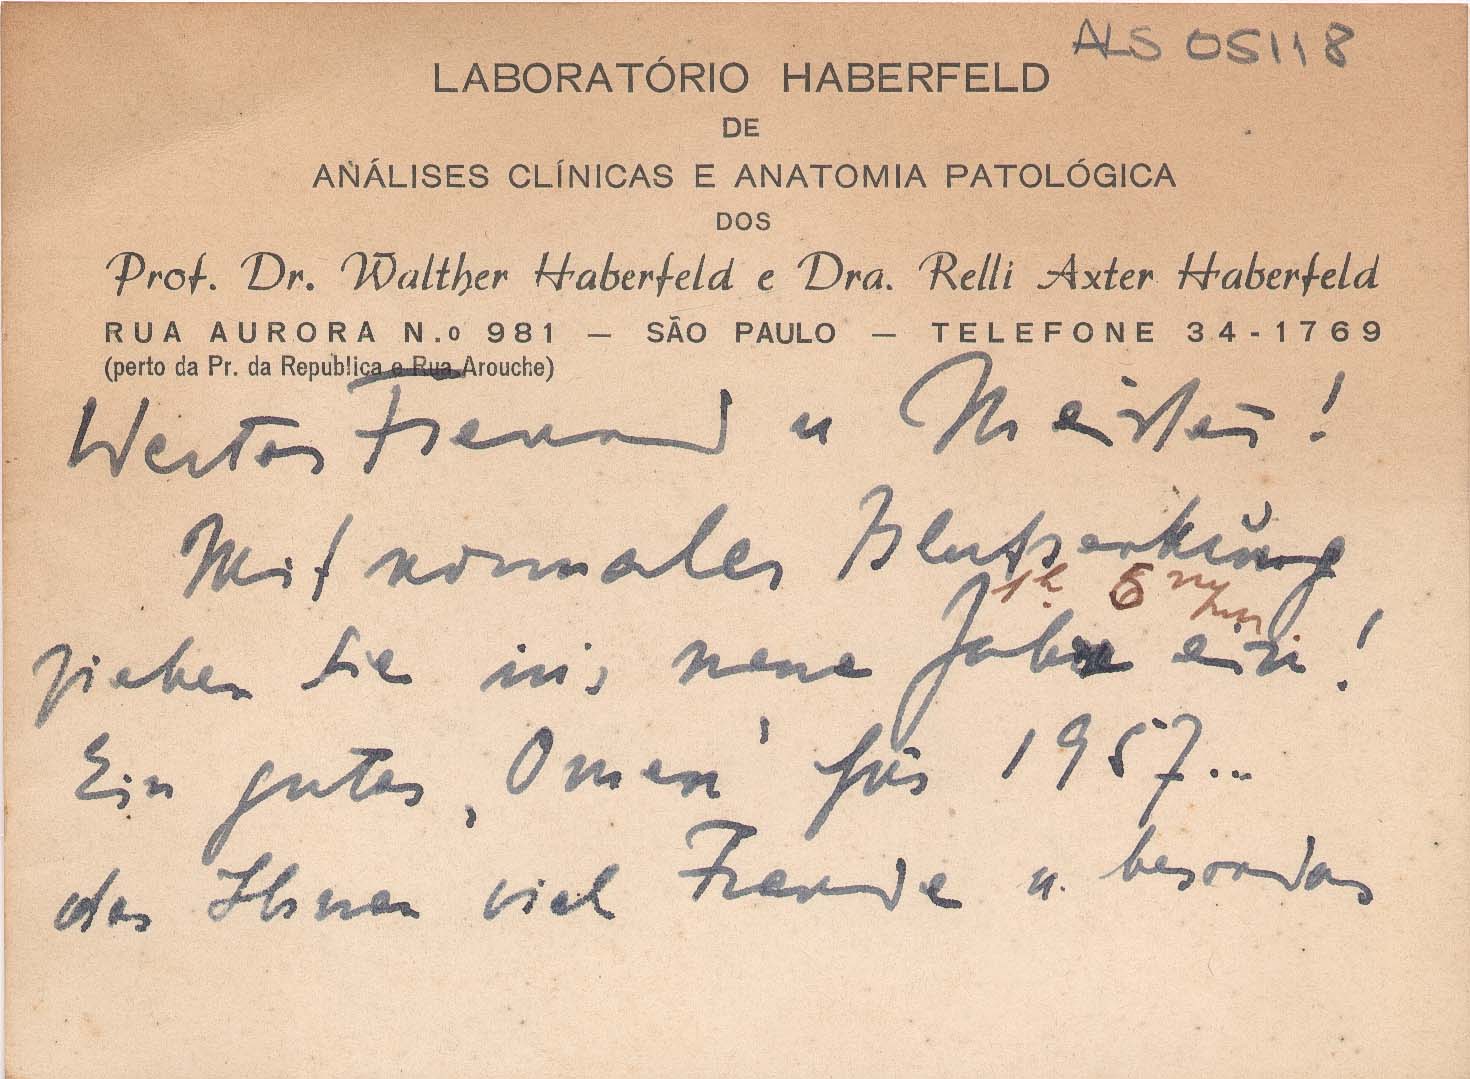 ALS 05118
LABORATÓRIO HABERFELD
DE
ANÁLISES CLÍNICAS E ANATOMIA PATOLÓGICA
DOS
Prof. Dr. Walther Haberfeld e Dra. Relli Axter Haberfeld
RUA AURORA N.o 981 — SÃO PAULO — TELEFONE 34-1769
(perto da Pr. da Republica e Rua Arouche)
Werter Freund u Meister!
Mit normaler Blutsenkung
1h 6
ziehen Sie ins neue Jahr ein!
Ein gutes ‚Omen' für 1957...
das Ihnen viel Freude u. besonders